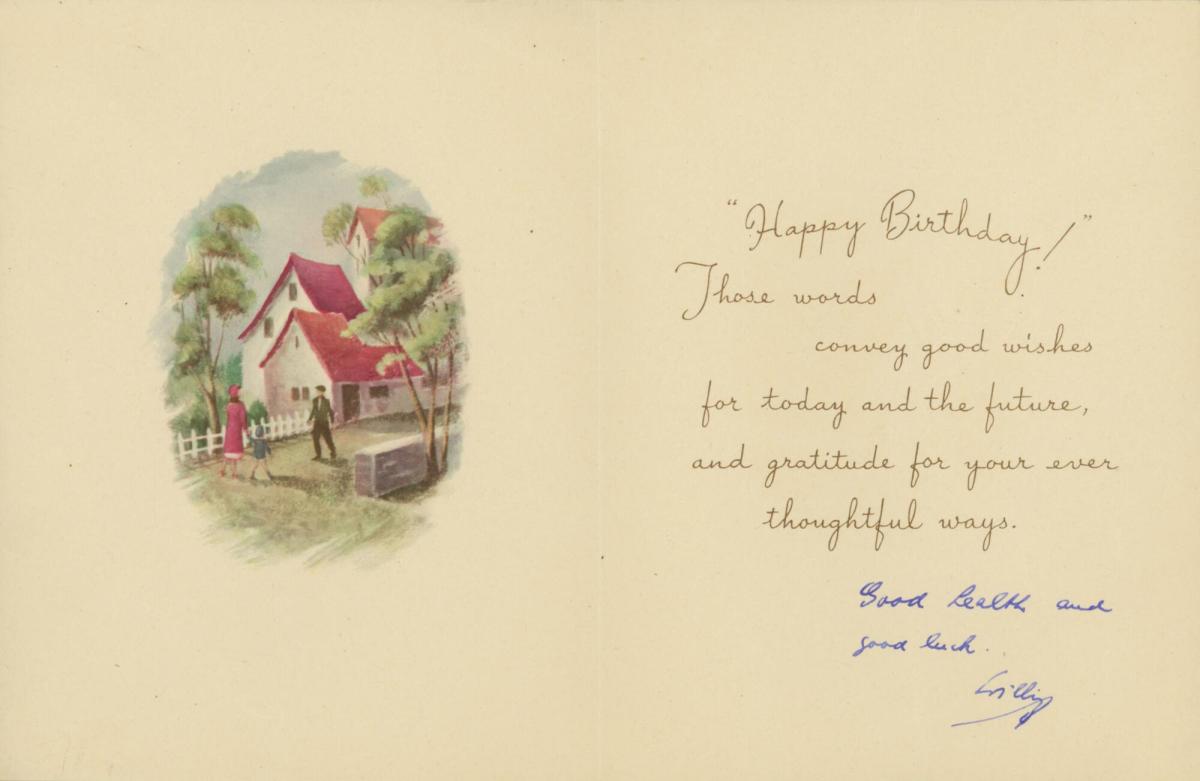 "Happy Birthday!"
Those words
convey good wishes
for today and the future,
and gratitude for your ever
thoughtful ways.
Good health and
good luck.
Willy